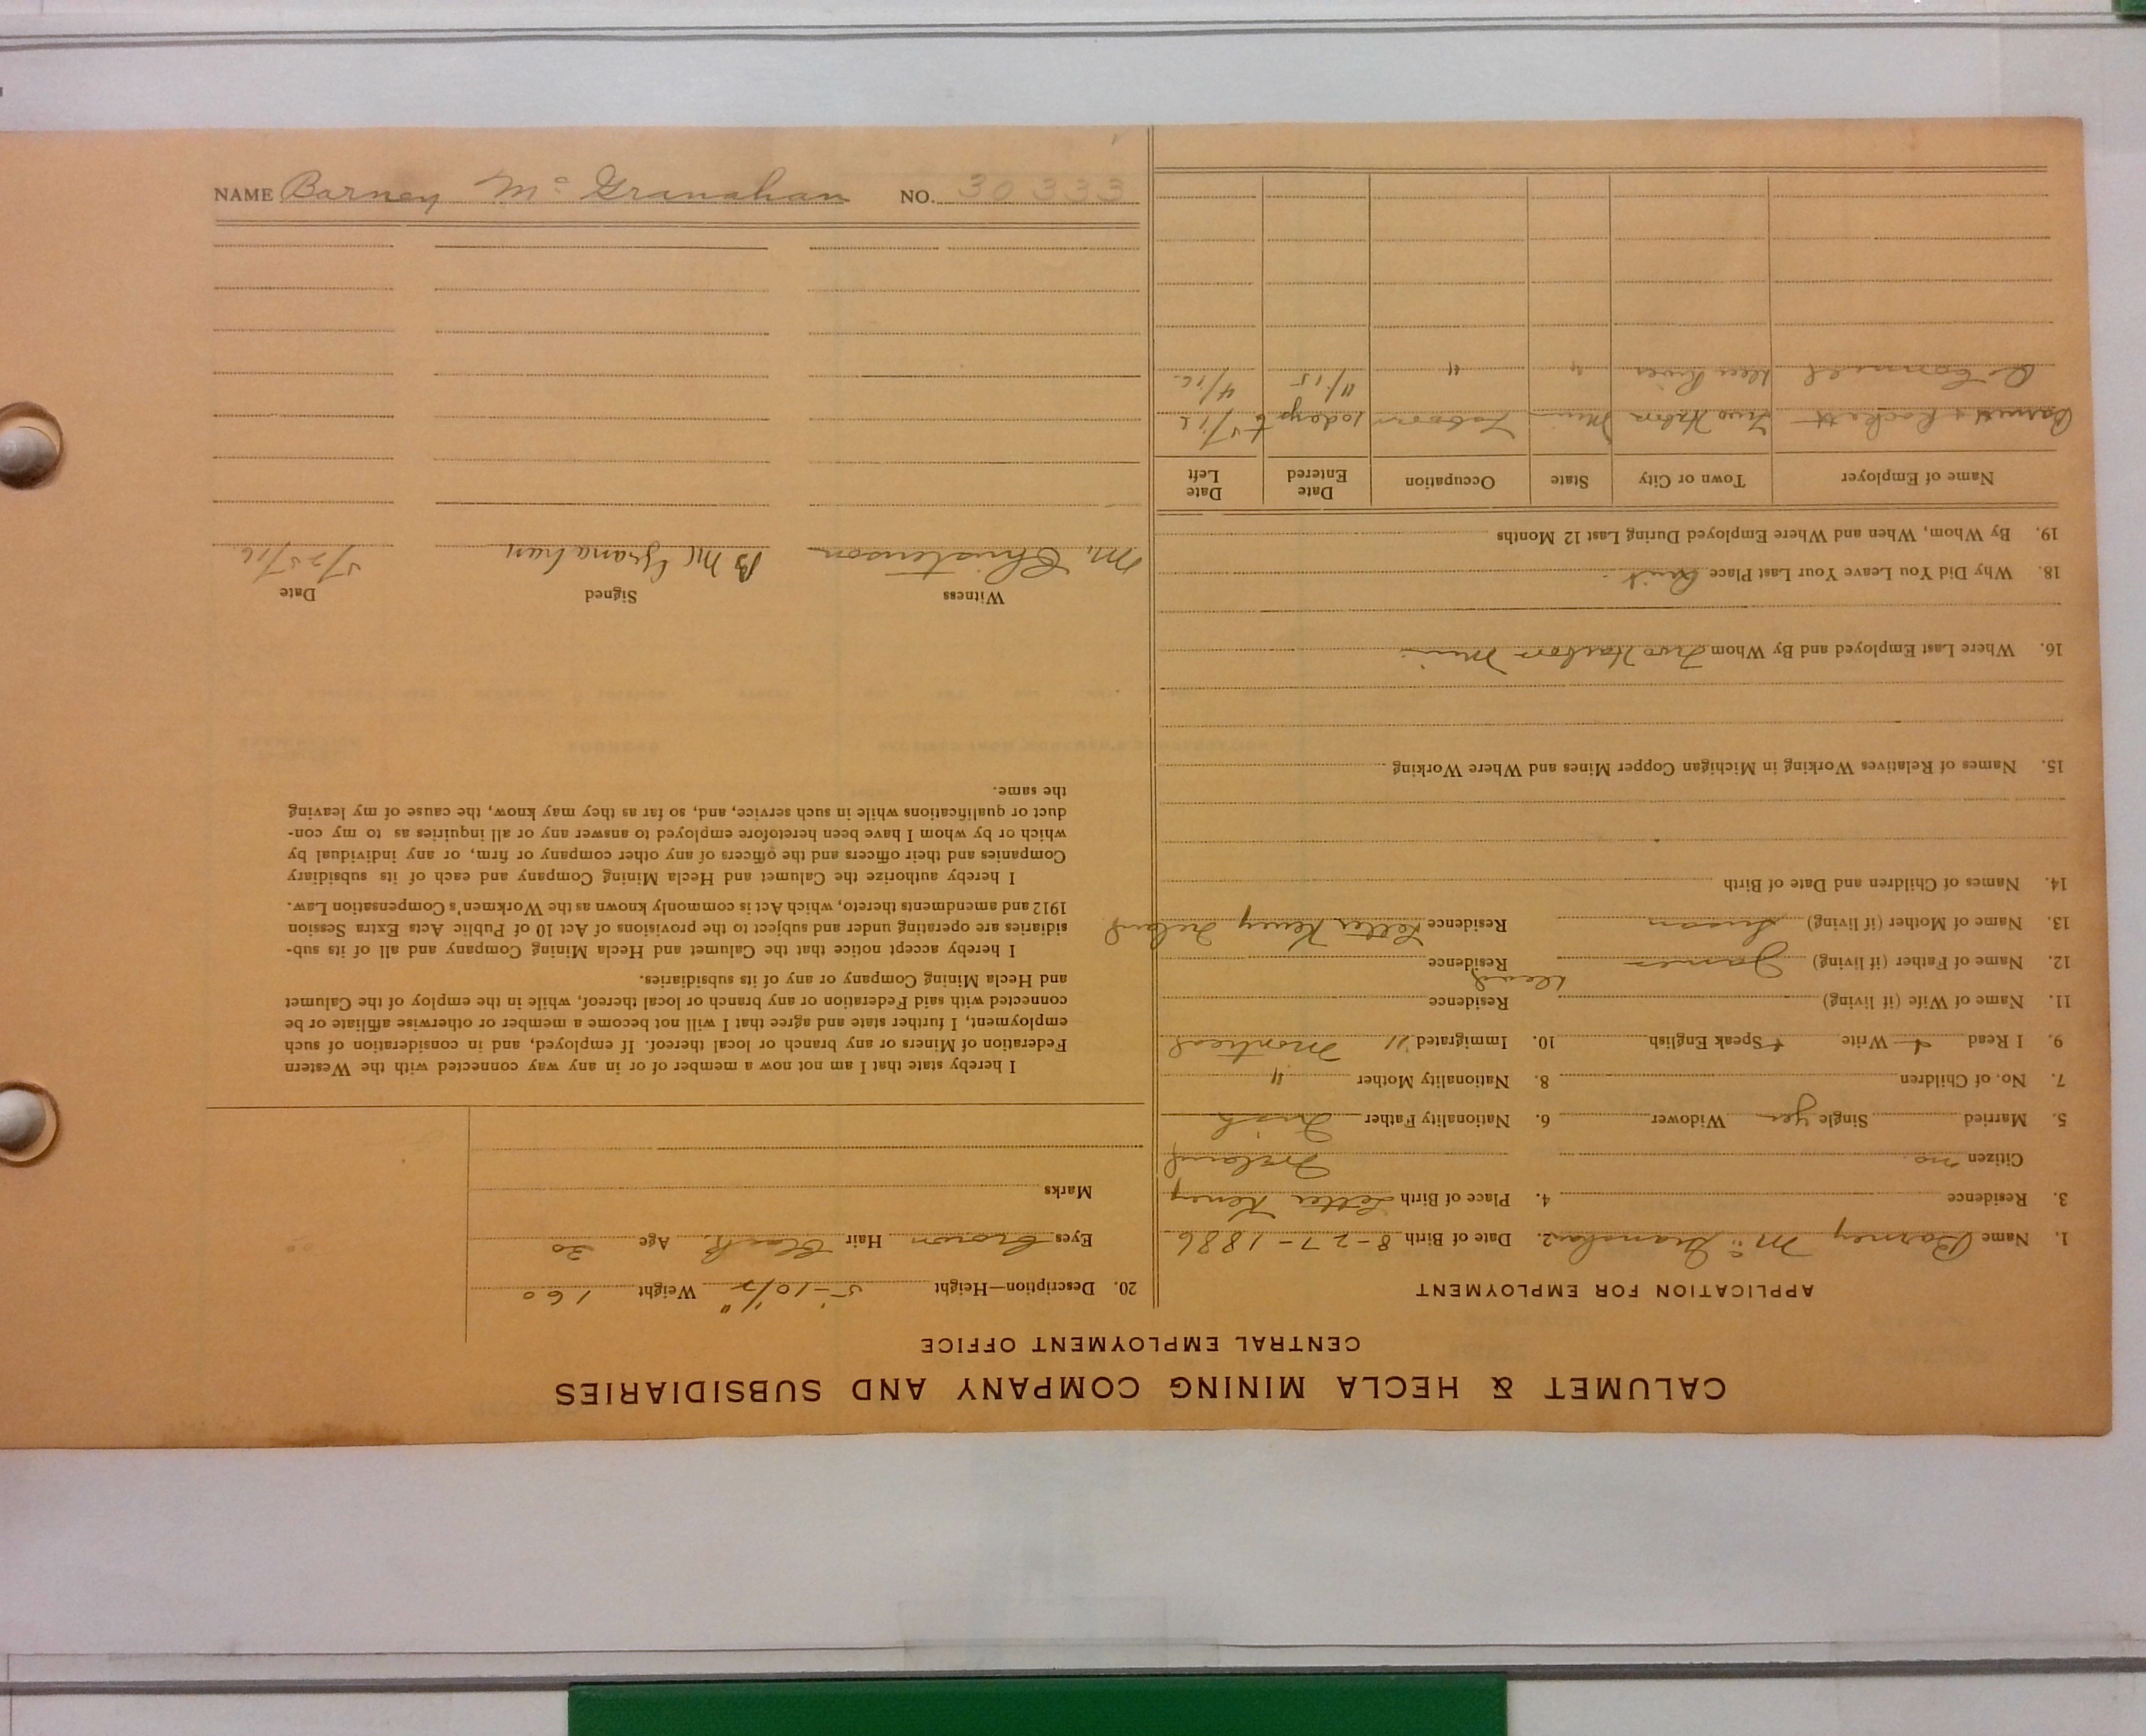 CALUMET & HECLA MINING COMPANY AND SUBSIDIARIES
CENTRAL EMPLOYMENT OFFICE
APPLICATION FOR EMPLOYMENT
1. Name Barney Mc Granahan 2. Date of Birth 8-27-1886
3. Residence 4. Place of Birth Letter Keney
Citizen no. Ireland
5. Married Single yes Widower 6. Nationality Father Irish
7. No. of Children 8. Nationality Mother "
9. I Read Write Speak English 10. Immigrated '11 Montreal
11. Name of Wife (if living) Residence
12. Name of Father (if living) James dead Residence
13. Name of Mother (if living) Susan Residence Letter Keney Ireland
14. Names of Children and Date of Birth
15. Names of Relatives Working in Michigan Copper Mines and Where Working
16. Where Last Employed and By Whom Two Harbors Minn
18. Why Did You Leave Your Last Place Quit
19. By Whom, When and Where Employed During Last 12 Months
Name of Employer Town or City State Occupation Date Entered Date Left
Two Harbors Minn Laborer 10 days 5/16
Deer River " " 11/15 4/16
20. Description—Height 5'-10 1/2" Weight 160
Eyes brown Hair Black Age 30
Marks
I hereby state that I am not now a member of or in any way connected with the Western
Federation of Miners or any branch or local thereof. If employed, and in consideration of such
employment, I further state and agree that I will not become a member or otherwise affiliate or be
connected with said Federation or any branch or local thereof, while in the employ of the Calumet
and Hecla Mining Company or any of its subsidiaries.
I hereby accept notice that the Calumet and Hecla Mining Company and all of its sub-
sidiaries are operating under and subject to the provisions of Act 10 of Public Acts Extra Session
1912 and amendments thereto, which Act is commonly known as the Workmen's Compensation Law.
I hereby authorize the Calumet and Hecla Mining Company and each of its subsidiary
Companies and their officers and the officers of any other company or firm, or any individual by
which or by whom I have been heretofore employed to answer any or all inquiries as to my con-
duct or qualifications while in such service, and, so far as they may know, the cause of my leaving
the same.
Witness Signed Date
M. Christenson B Mc Granahan 5/25/16
NAME Barney Mc Granahan NO. 30333